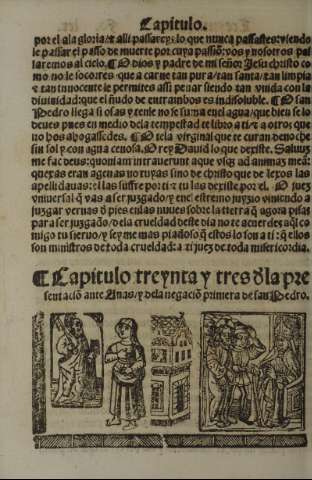 Capitulo.
por el ala gloria: ⁊ alli passarey: lo que nunca passastes: viendo
le passar el passo de muerte por cuya passiõ: vos y nosotros pas
saremos al cielo. O dios y padre de mi señor Jesu christo co
mo no le socores: que a carne tan pura: tan santa: tan limpia
⁊ tan innocente le permites assi penar siendo tan vnida con la
diuinidad: que el ñudo de entrambos es indissoluble. O san
Pedro llega si osas y tente no se suma en el agua: que bien se lo
deues pues en medio dela tempestad te libro a ti: ⁊ a otros: que
no vos ahogassedes. O tela virginal que te curan deno che
sin sol y con agua cenosa. O rey Dauid lo que dexiste. Saluuz
me fac deus: quoniam intrauerunt aque vsq; ad animaz meã:
que essas eran agenas no tuyas sino de christo que de lexos las
apellidauas: el las suffre por ti: ⁊ tu las dexiste por el. O juez
vniuersal q̃ vas a ser juzgado: y en el estremo juyzio viniendo a
juzgar vernas õ pies en las nuues sobre la tierra q̃ agora pisas
para ser juzgado: dela crueldad deste dia no te acuerdes aq̃l co
migo tu sieruo: y sey me mas piadoso q̃ estos lo son a ti: q̃ ellos
son ministros de toda crueldad: a ti juez de toda misericordia.
¶ Capitulo treynta y tres õla pre
sentaciõ ante Anas: y dela negaciõ primera de san Pedro.